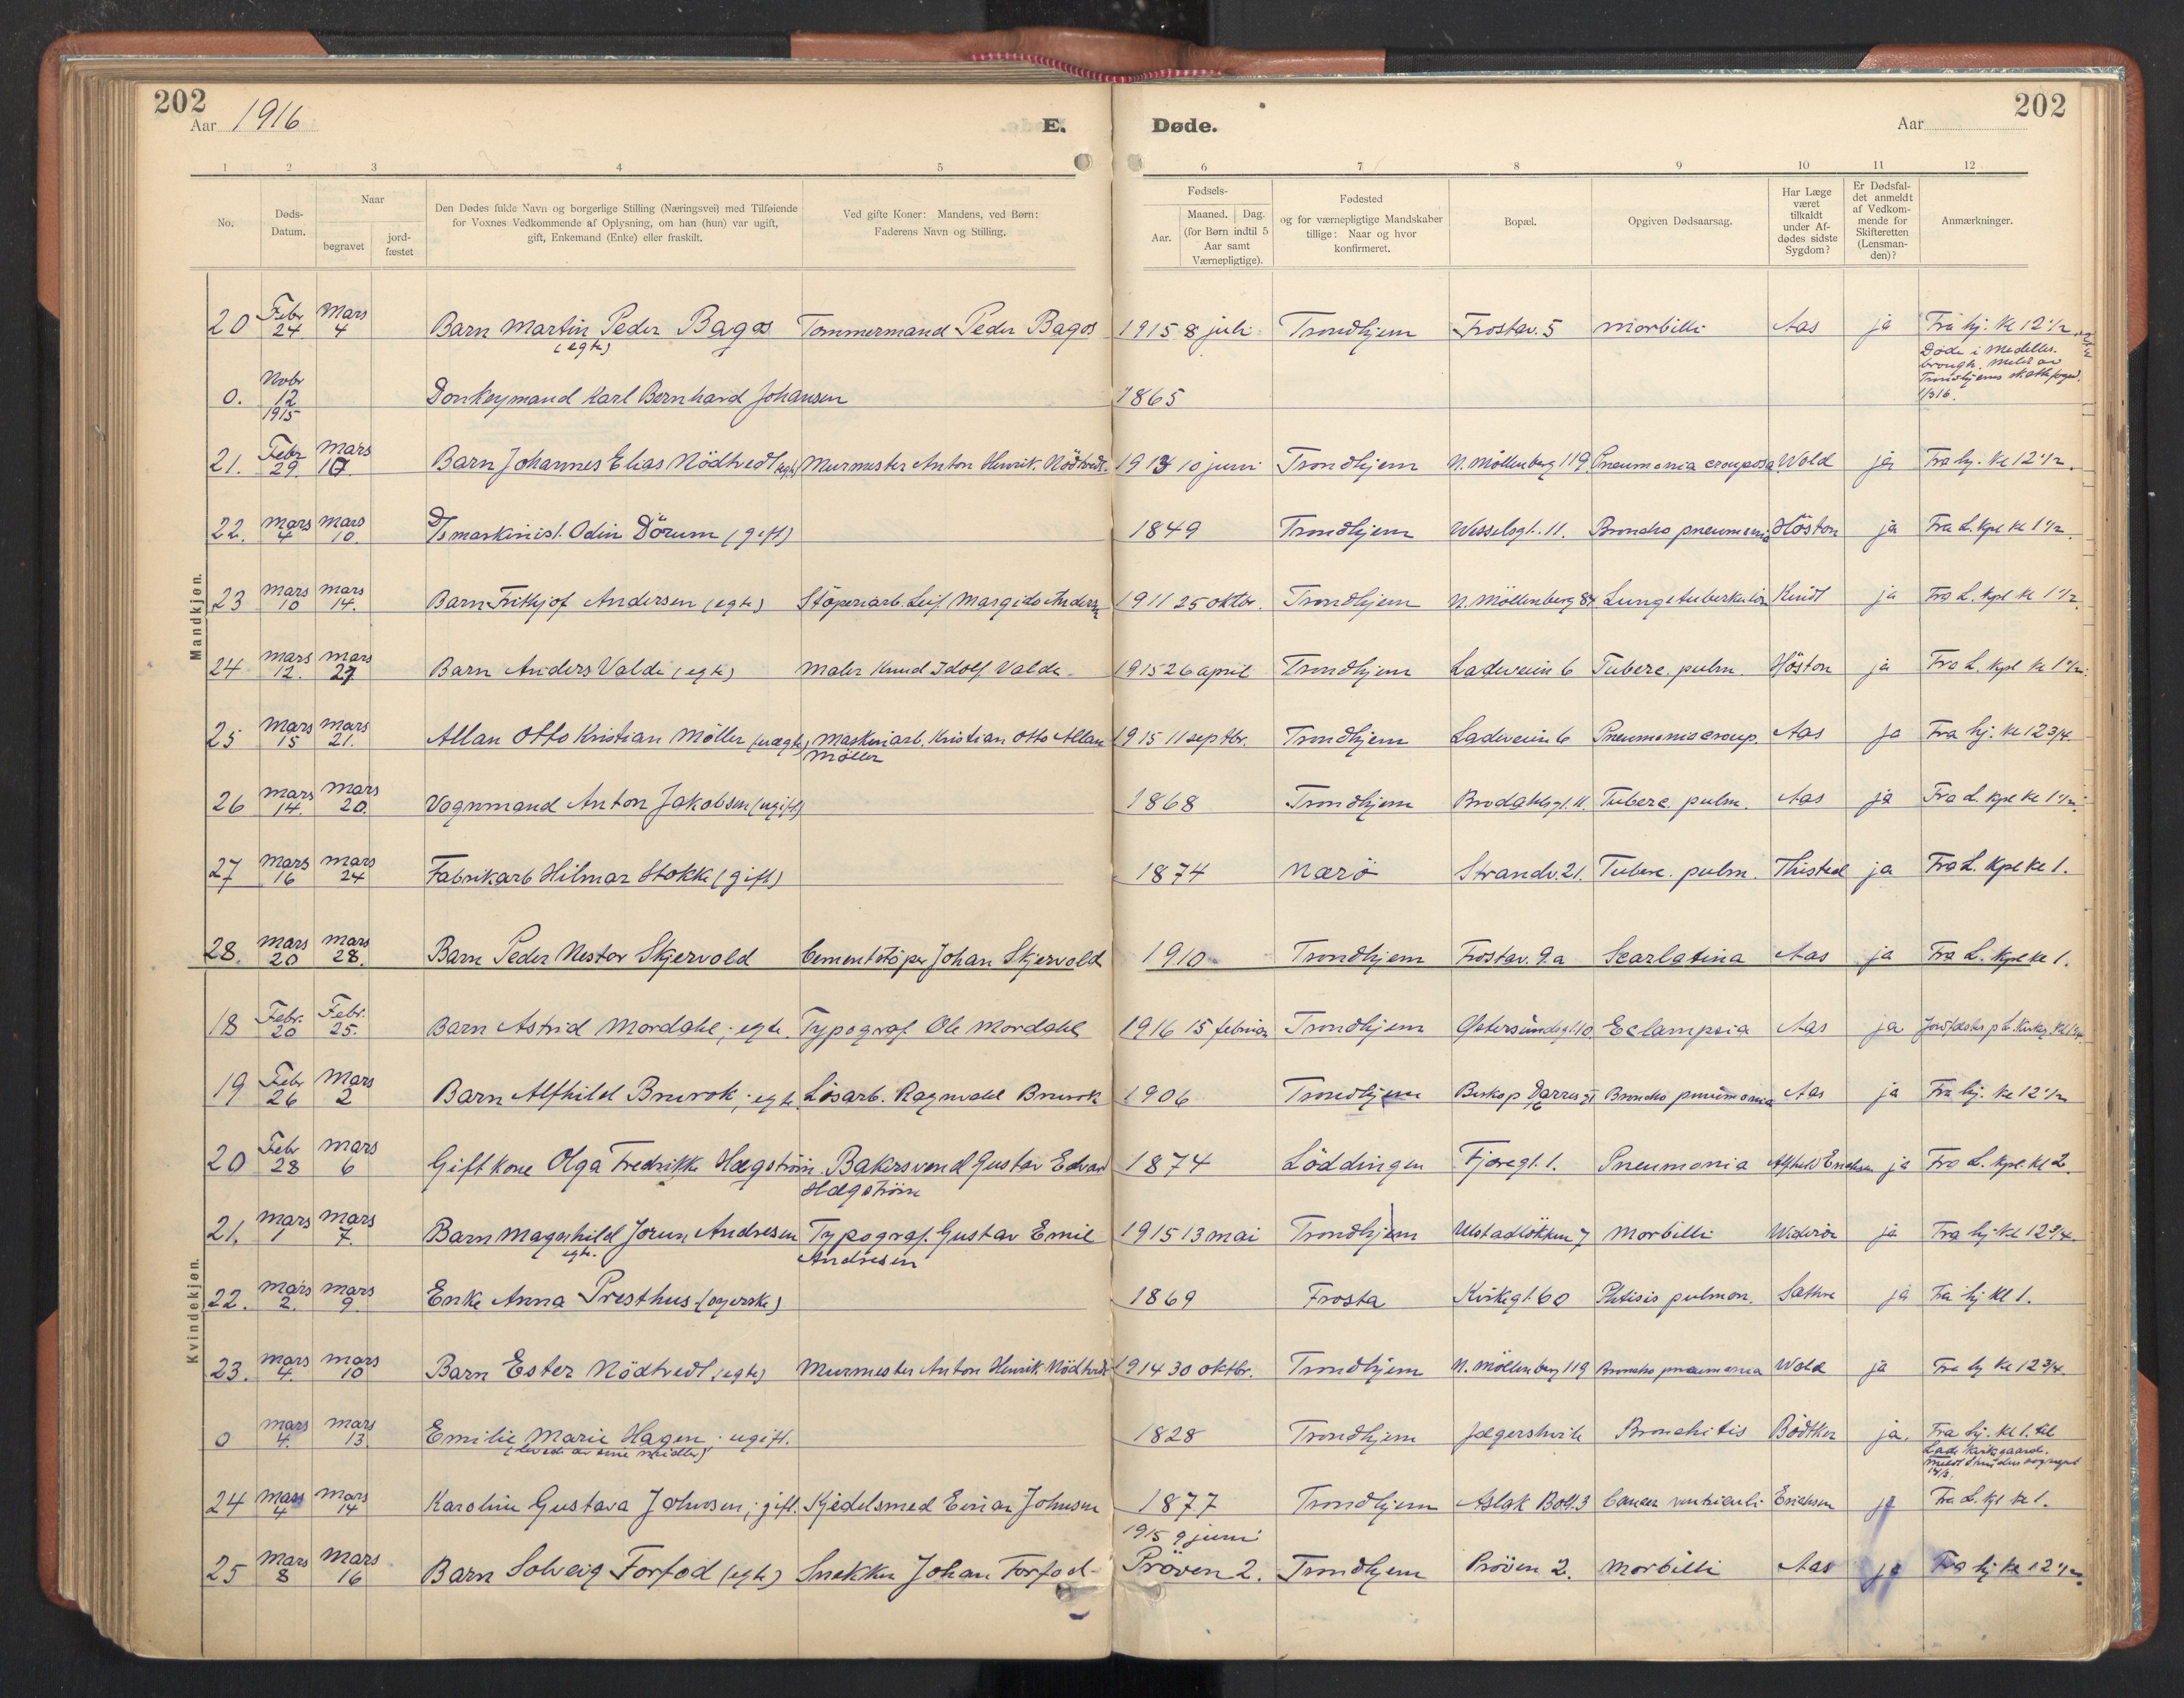 202
202
Aar 1916
E.
Døde.
Aar
1 2 3 4 5 6 7 8 9 10 11 12
No.
Døds-
Datum.
Naar
begravet
jord-
fæstet
Den Dødes fulde Navn og borgerlige Stilling (Næringsvei) med Tilføiende
for Voxnes Vedkommende af Oplysning, om han (hun) var ugift,
gift, Enkemand (Enke) eller fraskilt.
Ved gifte Koner: Mandens, ved Børn:
Faderens Navn og Stilling.
Fødsels-
Aar.
Maaned. Dag.
(for Børn indtil 5
Aar samt
Værnepligtige).
Fødested
og for værnepligtige Mandskaber
tillige: Naar og hvor
konfirmeret.
Bopæl.
Opgiven Dødsaarsag.
Har Læge
været
tilkaldt
under Af-
dødes sidste
Sygdom?
Er Dødsfal-
det anmeldt
af Vedkom-
mende for
Skifteretten
(Lensman-
den)?
Anmærkninger.
Mandkjøn.
20 Febr 24 Mars 4 Barn Martin Peder Bagøs (egte) Tømmermand Peder Bagøs 1915 8 juli Trondhjem Frostav. 5 Morbilli Aas ja Fra hj. kl 12 1/2
0. Novbr 12 1915 Donkeymand Karl Bernhard Johansen 1865 Døde i Medelles-
brough. Meldt av
Trondhjems skattefoged.
1/3 16.
21. Febr 29. Mars 10 Barn Johannes Elias Nödtvedt (egte) Murmester Anton Henrik Nödtvedt 1913 10 juni Trondhjem N. Möllenberg 119 Pneumonia crouposa Wold ja Fra hj. kl 12 1/2.
22. Mars 4 Mars 10. D/s maskinist. Odin Dörum (gift) 1849 Trondhjem Wesselsgt. 11. Broncho pneumonia Höston ja Fra L. kpl kl 1 1/2.
23 Mars 10 Mars 14. Barn Fritjof Andersen (egte) Stöperiarb. Leif Margido Andersen 1911 25 oktbr. Trondhjem N. Möllenberg 84 Lungetuberkulose Kindt ja Fra L. kpl kl 1 1/2.
24 Mars 12. Mars 27 Barn Anders Valde (egte) Maler Knud Idolf Valde 1915 26 april Trondhjem Ladeveien 6 Tuberc. pulm. Höston ja Fra L. kpl kl 1 1/2.
25 Mars 15 Mars 21. Allan Otto Kristian Möller (uægte) Maskinarb. Kristian Otto Allan
Möller 1915 11 septbr. Trondhjem Ladeveien 6 Pneumonia croup. Aas ja Fra hj. kl 12 3/4.
26 Mars 14. Mars 20. Vognmand Anton Jakobsen (ugift) 1868 Trondhjem Brodahlsgt. 11. Tuberc. pulm. Aas ja Fra L. kpl kl 1 1/2.
27 Mars 16 Mars 24 Fabrikarb Hilmar Stokke (gift) 1874 Nærö Strandv. 21. Tuberc. pulm. Thisted ja Fra L. kpl kl 1.
28. Mars 20 Mars 28. Barn Peder Nestor Skjervold Cementstöper Johan Skjervold 1910 Trondhjem Frostav. 9.a Scarlatina Aas ja Fra L. kpl kl 1.
Kvindekjøn.
18 Febr. 20 Febr. 25. Barn Astrid Mordahl; egte. Typograf Ole Mordahl 1916 15 februar Trondhjem Östersundsgt. 10. Eclampsia Aas ja
19 Febr 26 Mars 2 Barn Alfhild Bruvok; egte. Lösarb. Ragnvald Bruvok 1906 Trondhjem Biskop Darres gt Broncho pneumonia Aas ja Fra hj. kl 12 1/2
20 Febr 28 Mars 6 Gift kone Olga Fredrikke Hægström. Bakersvend Gustav Edvard
Hægström 1874 Löddingen Fjæregt. 1. Pneumonia Alfhild Erichsen ja Fra L. kpl. kl 2.
21. Mars 1 Mars 7. Barn Magnhild Jorun Andresen
egte. Typograf. Gustav Emil
Andresen 1915 13 mai Trondhjem Ulstadlökken 7 Morbilli Wideröe ja Fra hj kl 12 3/4.
22. Mars 2. Mars 9. Enke Anna Presthus (syerske) 1869 Frosta Kirkegt. 60 Phtisis pulmon. Sæther ja Fra hj kl 1.
23. Mars 4. Mars 10 Barn Ester Nödtvedt (egte) Murmester Anton Henrik Nödtvedt 1914 30 oktbr. Trondhjem N. Möllenberg 119 Broncho pneumonia Wold ja Fra hj kl 12 3/4.
0 Mars 4. Mars 13. Emilie Marie Hagen. ugift.
(leved av sine midler) 1828 Trondhjem Jægershvile Bronchitis Bödtker ja. Fra hj. kl 1. til
Lade kirkegaard.
24 Mars 4 Mars 14 Karoline Gustava Johnsen; gift. Kjedelsmed Einar Johnsen 1877 Trondhjem Aslak Botg. 3 Cancer ventriculi Erichsen ja Fra L. kpl kl 1.
25 Mars 8 Mars 16 Barn Solveig Forfod (egte) Snekker Johan Forfod 1915 9 juni
Pröven 2. Trondhjem Pröven 2. Morbilli Aas ja Fra hj kl 12 1/2.